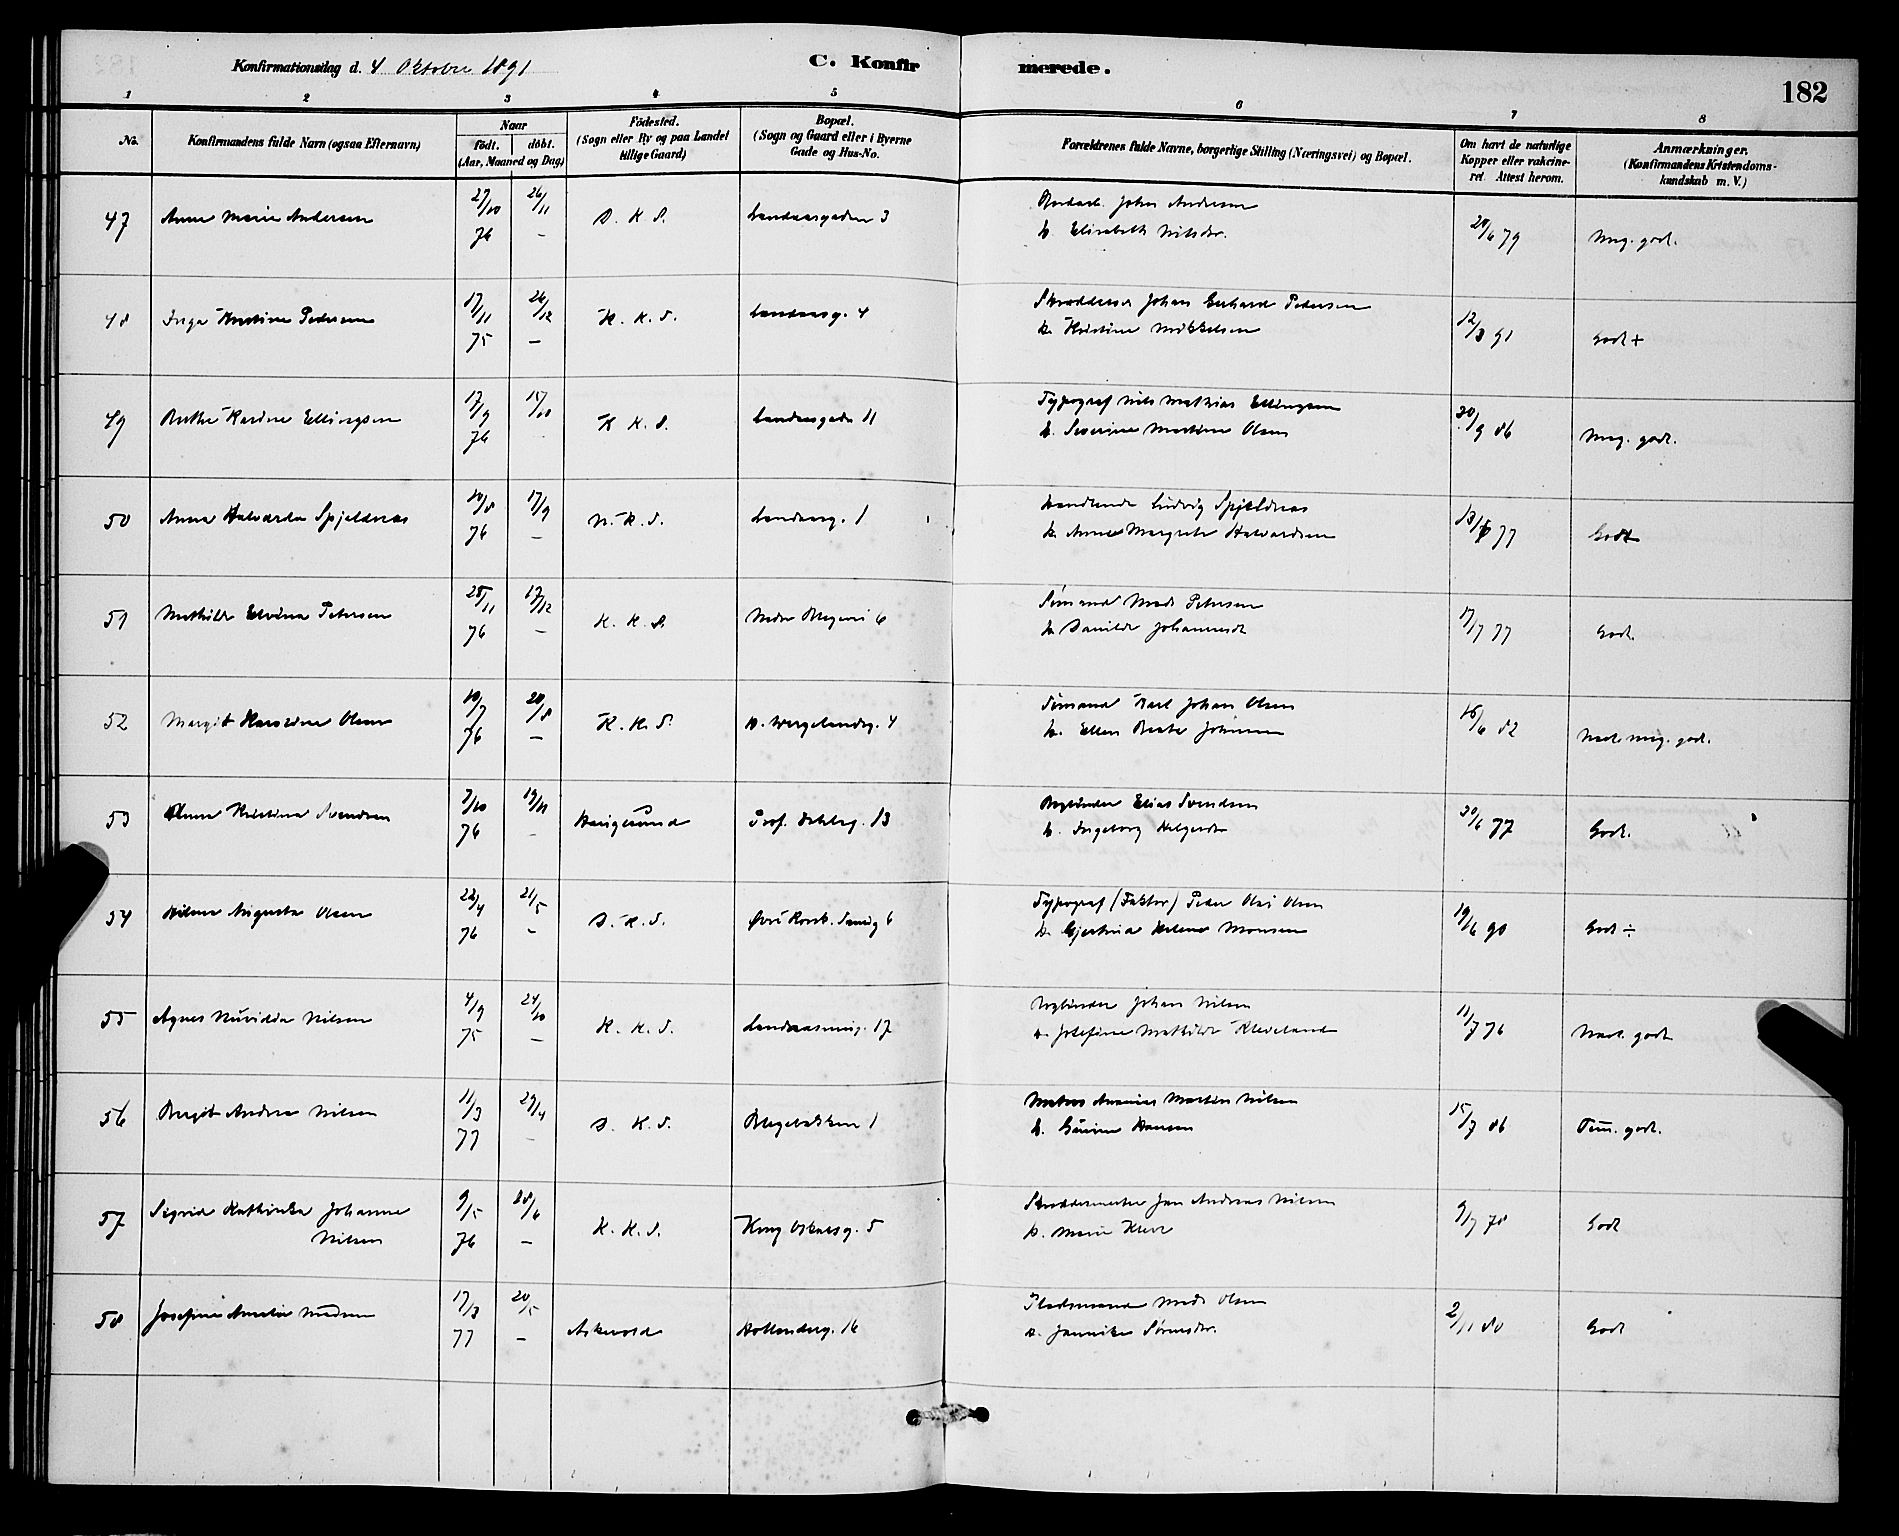 Konfirmationsdag d. 4 Oktober 1891
C. Konfir merede.
182
1 2 3 4 5 6 7 8
No.
Konfirmandens fulde Navn (ogsaa Efternavn)
Naar
födt. döbt.
(Aar, Maaned og Dag)
Födested.
(Sogn eller By og paa Landet
tillige Gaard)
Bopæl.
(Sogn og Gaard eller i Byerne
Gade og Hus-No.
Forældrenes fulde Navne, borgerlige Stilling (Næringsvei) og Bopæl.
Om havt de naturlige
Kopper eller vakcine-
ret. Attest herom.
Anmærkninger.
(Konfirmandens Kristendoms-
kundskab m. V.)
47 Anna Marie Andersen 27/10 76 26/11 – D. K. S. Landaasgaden 3
Johan Andersen
h. Elisabeth Nilsdr. 28/6 79 Meg. godt.
48 Inga Kristine Pedersen 17/11 75 26/12 – K. K. S. Landaasg. 4
Johan Gerhard Pedersen
h. Kristine Mikkelsen 12/3 91 Godt +
49 Ellingsen 17/9 76 15/10 K. K. S. Landaasgaden 11
Typograf Nils Mathias Ellingsen
h. Severine Martine Olsen 30/9 86 Meg. godt.
50 Anna Halvarda Spjeldnæs 10/8 76 17/9 – N. K. S. Landaasg. 1
Handlende Ludvig Spjeldnæs
h. Anne Margrete Halvardsen 77 Godt
51 Mathilde Elvina Petersen 25/11 76 17/12 – K. K. S. 6
Sömand Mads Petersen
h. Danilde Johannesdr. 17/7 77 Godt.
52 Margit Olsen 10/7 76 20/8 – K. K. S. H. Wergelandsg. 4
Sömand Karl Johan Olsen
h. Ellen Beate Johnsen 16/6 82 Næst. meg. godt.
53 Anna Kristina Svendsen 7/10 76 19/11 – Haugesund Prof. 13
Elias Svendsen
h. Ingeborg Helgesdr. 30/6 77 Godt.
54 Hilma Augusta Olsen 22/4 76 21/5 – D. K. S. 6
Typograf (Faktor) Peder Olai Olsen
h. Gjertrud Helene Monsen 19/6 90 Godt ÷
55 Agnes Nilsen 4/9 75 24/10 – K. K. S. 17
Johan Nilsen
h. Josefine Mathilde Kleveland 11/7 76 Næst. godt
56 Bergit Andrea Nilsen 11/3 77 29/4 – D. K. S. 1
Martin Nilsen
h. Hansen 15/7 86 Tem. godt.
57 Sigrid Kathinka Johanne
Nilsen 9/5 76 – K. K. S. Kong Oskarsg. 5
Jan Andreas Nilsen
h. Marie 9/7 78 Godt
58 Josefine Amalie Madsen 17/3 77 20/5 – Askevold Hollenderg. 16
Mads Olsen
h. Jannike Sörensdr. 2/11 80 Godt